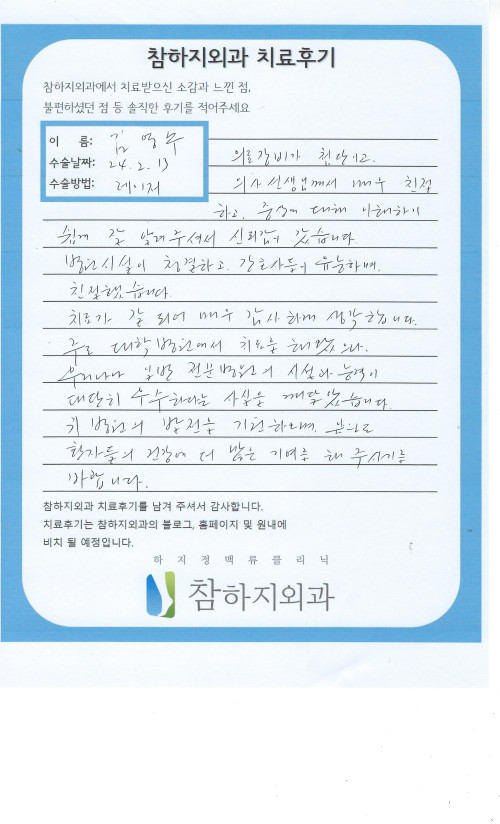 참하지외과 치료후기
참하지외과에서 치료받으신 소감과 느낀 점,
불편하셨던 점 등 솔직한 후기를 적어주세요
이 름: 김영수
수술날짜: 24. 2. 13
수술방법: 레이저
의료장비가 첨단이고.
의사선생님께서 매우 친절
하고, 증상에 대해 이해하기
쉽게 잘 알려주셔서 신뢰감이 갔습니다.
병원시설이 청결하고, 간호사들이 유능하며,
친절했습니다.
치료가 잘 되어 매우 감사하게 생각합니다.
주로 대학병원에서 치료를 해왔으나,
우리나라 일반 전문병원의 시설과 능력이
대단히 우수하다는 사실을 깨달았습니다.
귀 병원의 발전을 기원하오며, 앞으로
환자들의 건강에 더 많은 기여를 해 주시기를
바랍니다.
참하지외과 치료후기를 남겨 주셔서 감사합니다.
치료후기는 참하지외과의 블로그, 홈페이지 및 원내에
비치 될 예정입니다.
하지정맥류클리닉
참하지외과